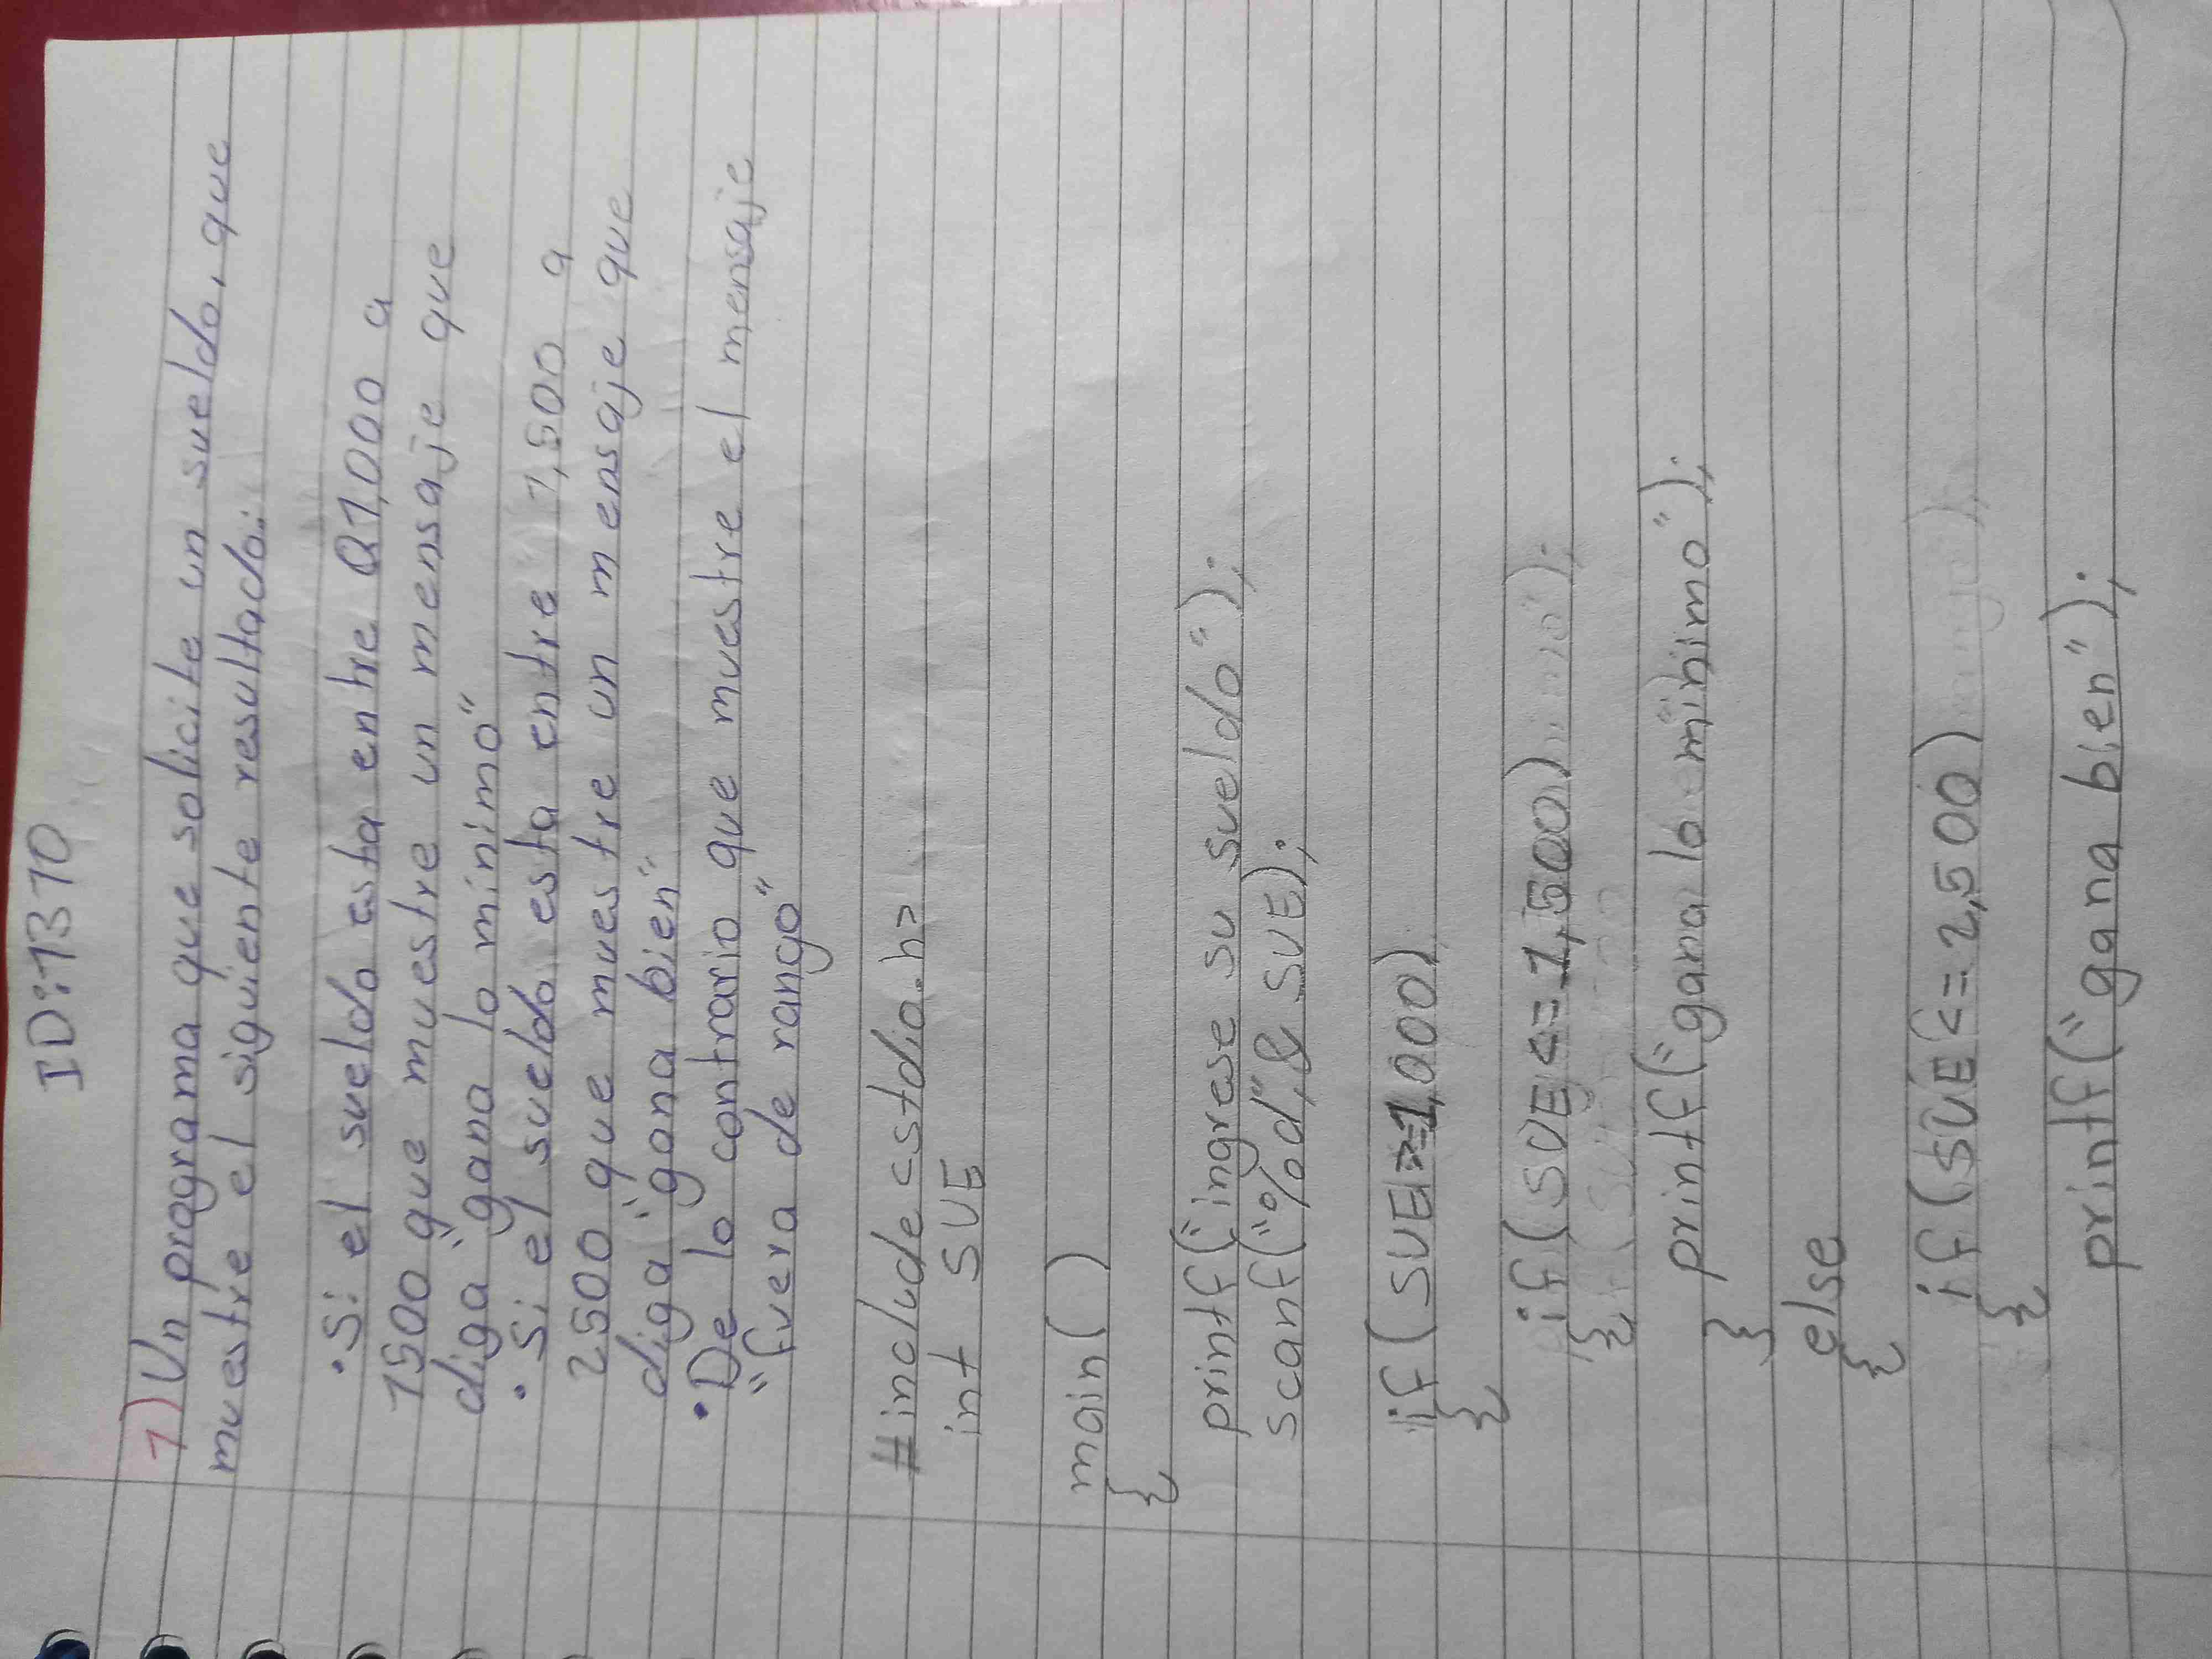 ID:1310
1) Un programa que solicite un sueldo, que
muestre el siguiente resultado:
• Si el sueldo esta entre Q1,000 a
1500 que muestre un mensaje que
diga "gana lo minimo"
• Si el sueldo esta entre 1,500 a
2500 que muestre un mensaje que
diga "gana bien"
• De lo contrario que muestre el mensaje
"fuera de rango"
#include <stdio.h>
int SUE
main()
{
printf("ingrese su sueldo");
scanf("%d",& SUE);
if(SUE>=1,000)
{
if(SUE<=1,500)
{
printf("gana lo minimo");
}
else
{
if(SUE<=2,500)
{
printf("gana bien");